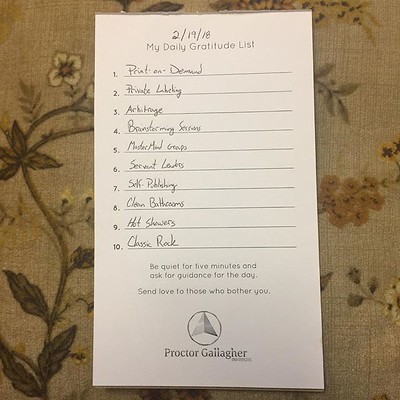 2/19/18
My Daily Gratitude List
1. Print-on-Demand
2. Private Labeling
3. Arbitrage
4. Brainstorming Sessions
5. MasterMind Groups
6. Servant Leaders
7. Self-Publishing
8. Clean Bathrooms
9. Hot Showers
10. Classic Rock
Be quiet for five minutes and
ask for guidance for the day.
Send love to those who bother you.
Proctor Gallagher
INSTITUTE